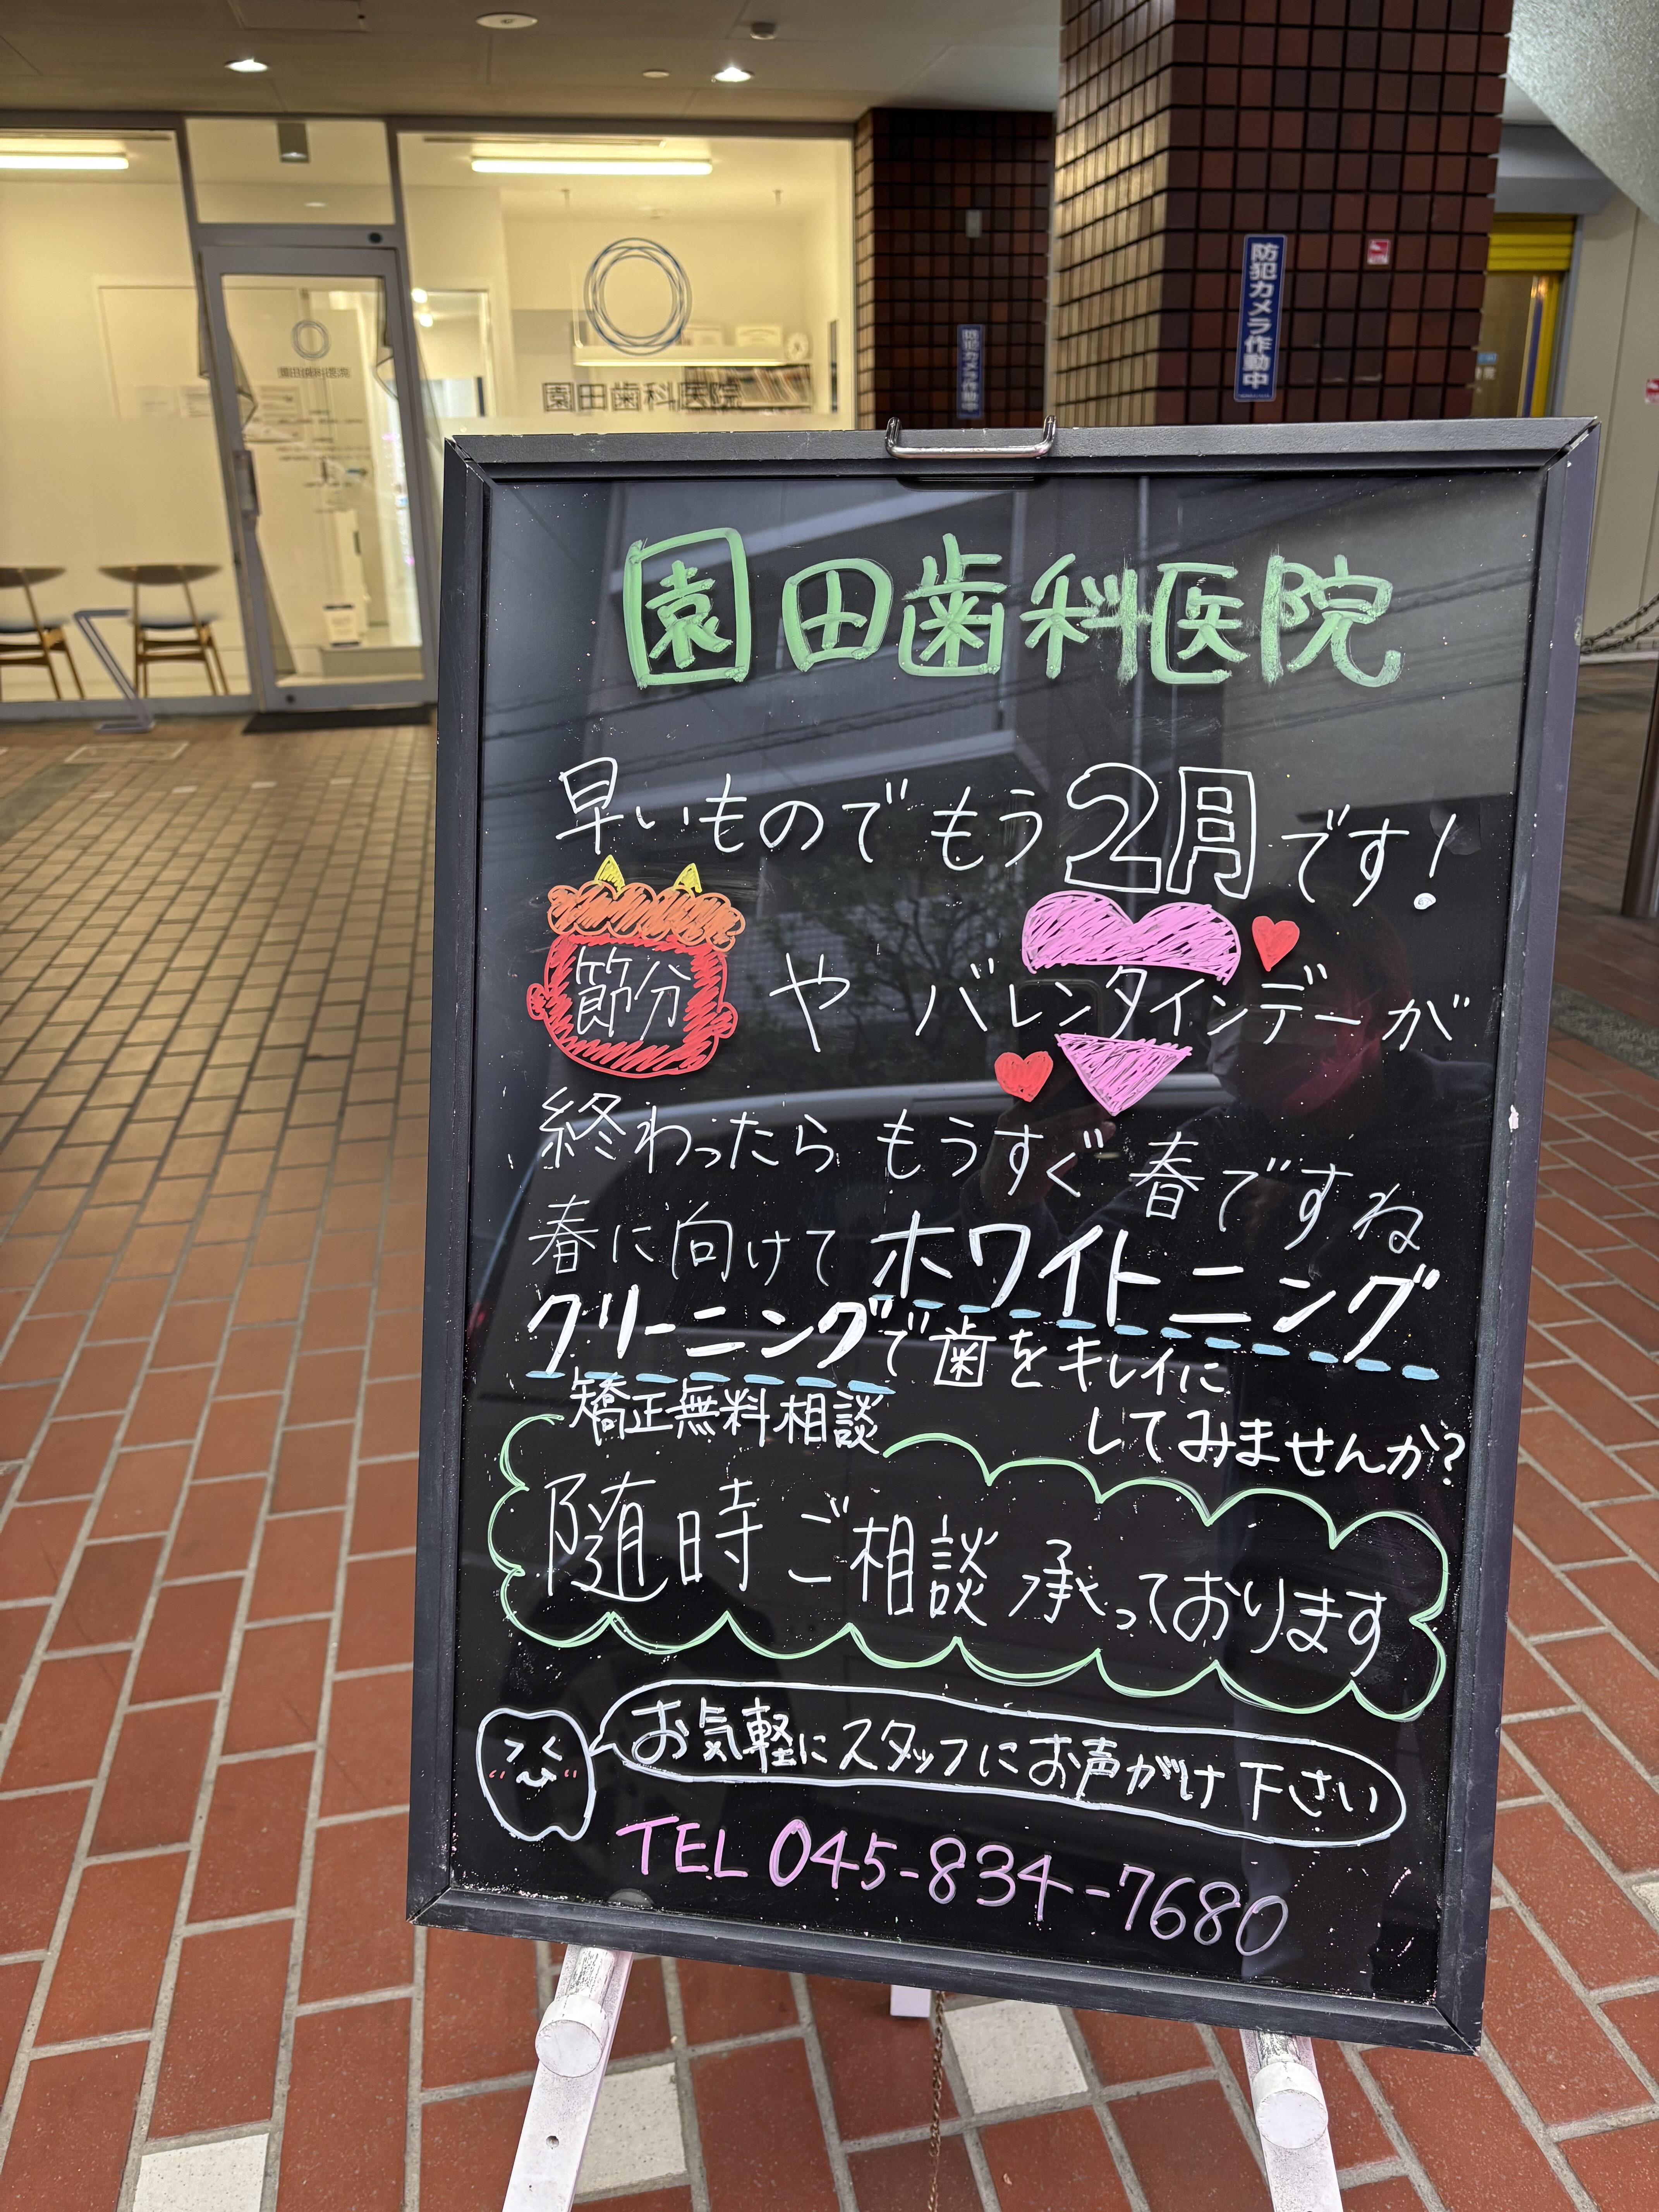 園田歯科医院
園田歯科医院
防犯カメラ作動中
防犯カメラ作動中
園田歯科医院
早いものでもう2月です!
節分やバレンタインデーが
終わったらもうすぐ春ですね
春に向けてホワイトニング
クリーニングで歯をキレイに
してみませんか?
矯正無料相談
随時ご相談承っております
お気軽にスタッフにお声がけ下さい
TEL 045-834-7680